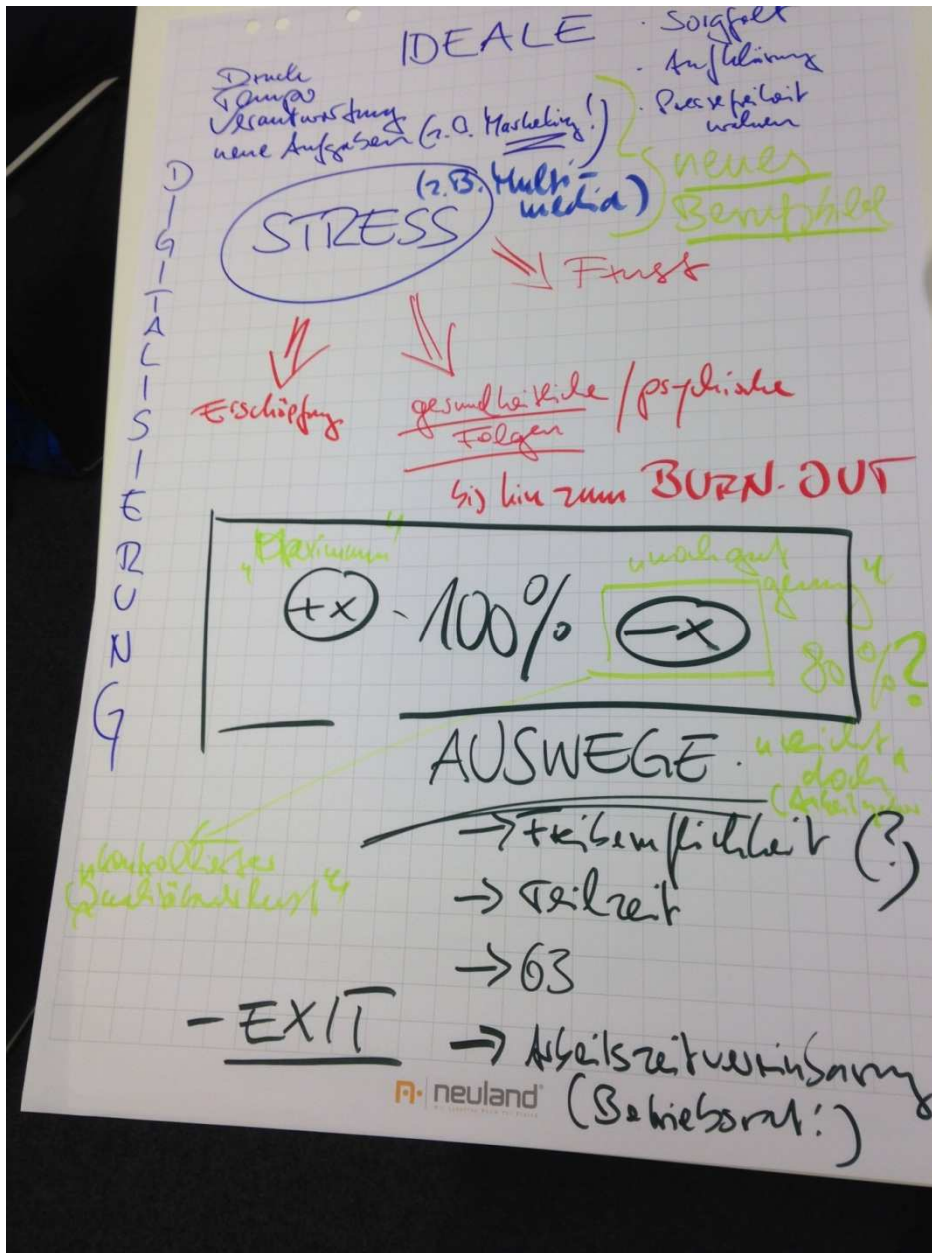 IDEALE
· Sorgfalt
· Aufklärung
· Pressefreiheit
wahren
Druck
Tempo
Verantwortung
neue Aufgaben (z.B. Marketing!)
(z.B. Multi-
media)
neues
Berufsbild
DIGITALISIERUNG
STRESS
Frust
Erschöpfung
gesundheitliche / psychische
Folgen
bis hin zum BURN-OUT
„Maximum"
+x - 100% -x
„noch gut
genug"
80%?
AUSWEGE.
„reicht
doch"
„kontrollierter
Qualitätsverlust"
→ Freiberuflichkeit (?)
→ Teilzeit
→ 63
- EXIT → Arbeitszeitvereinbarung
(Betriebsrat!)
neuland